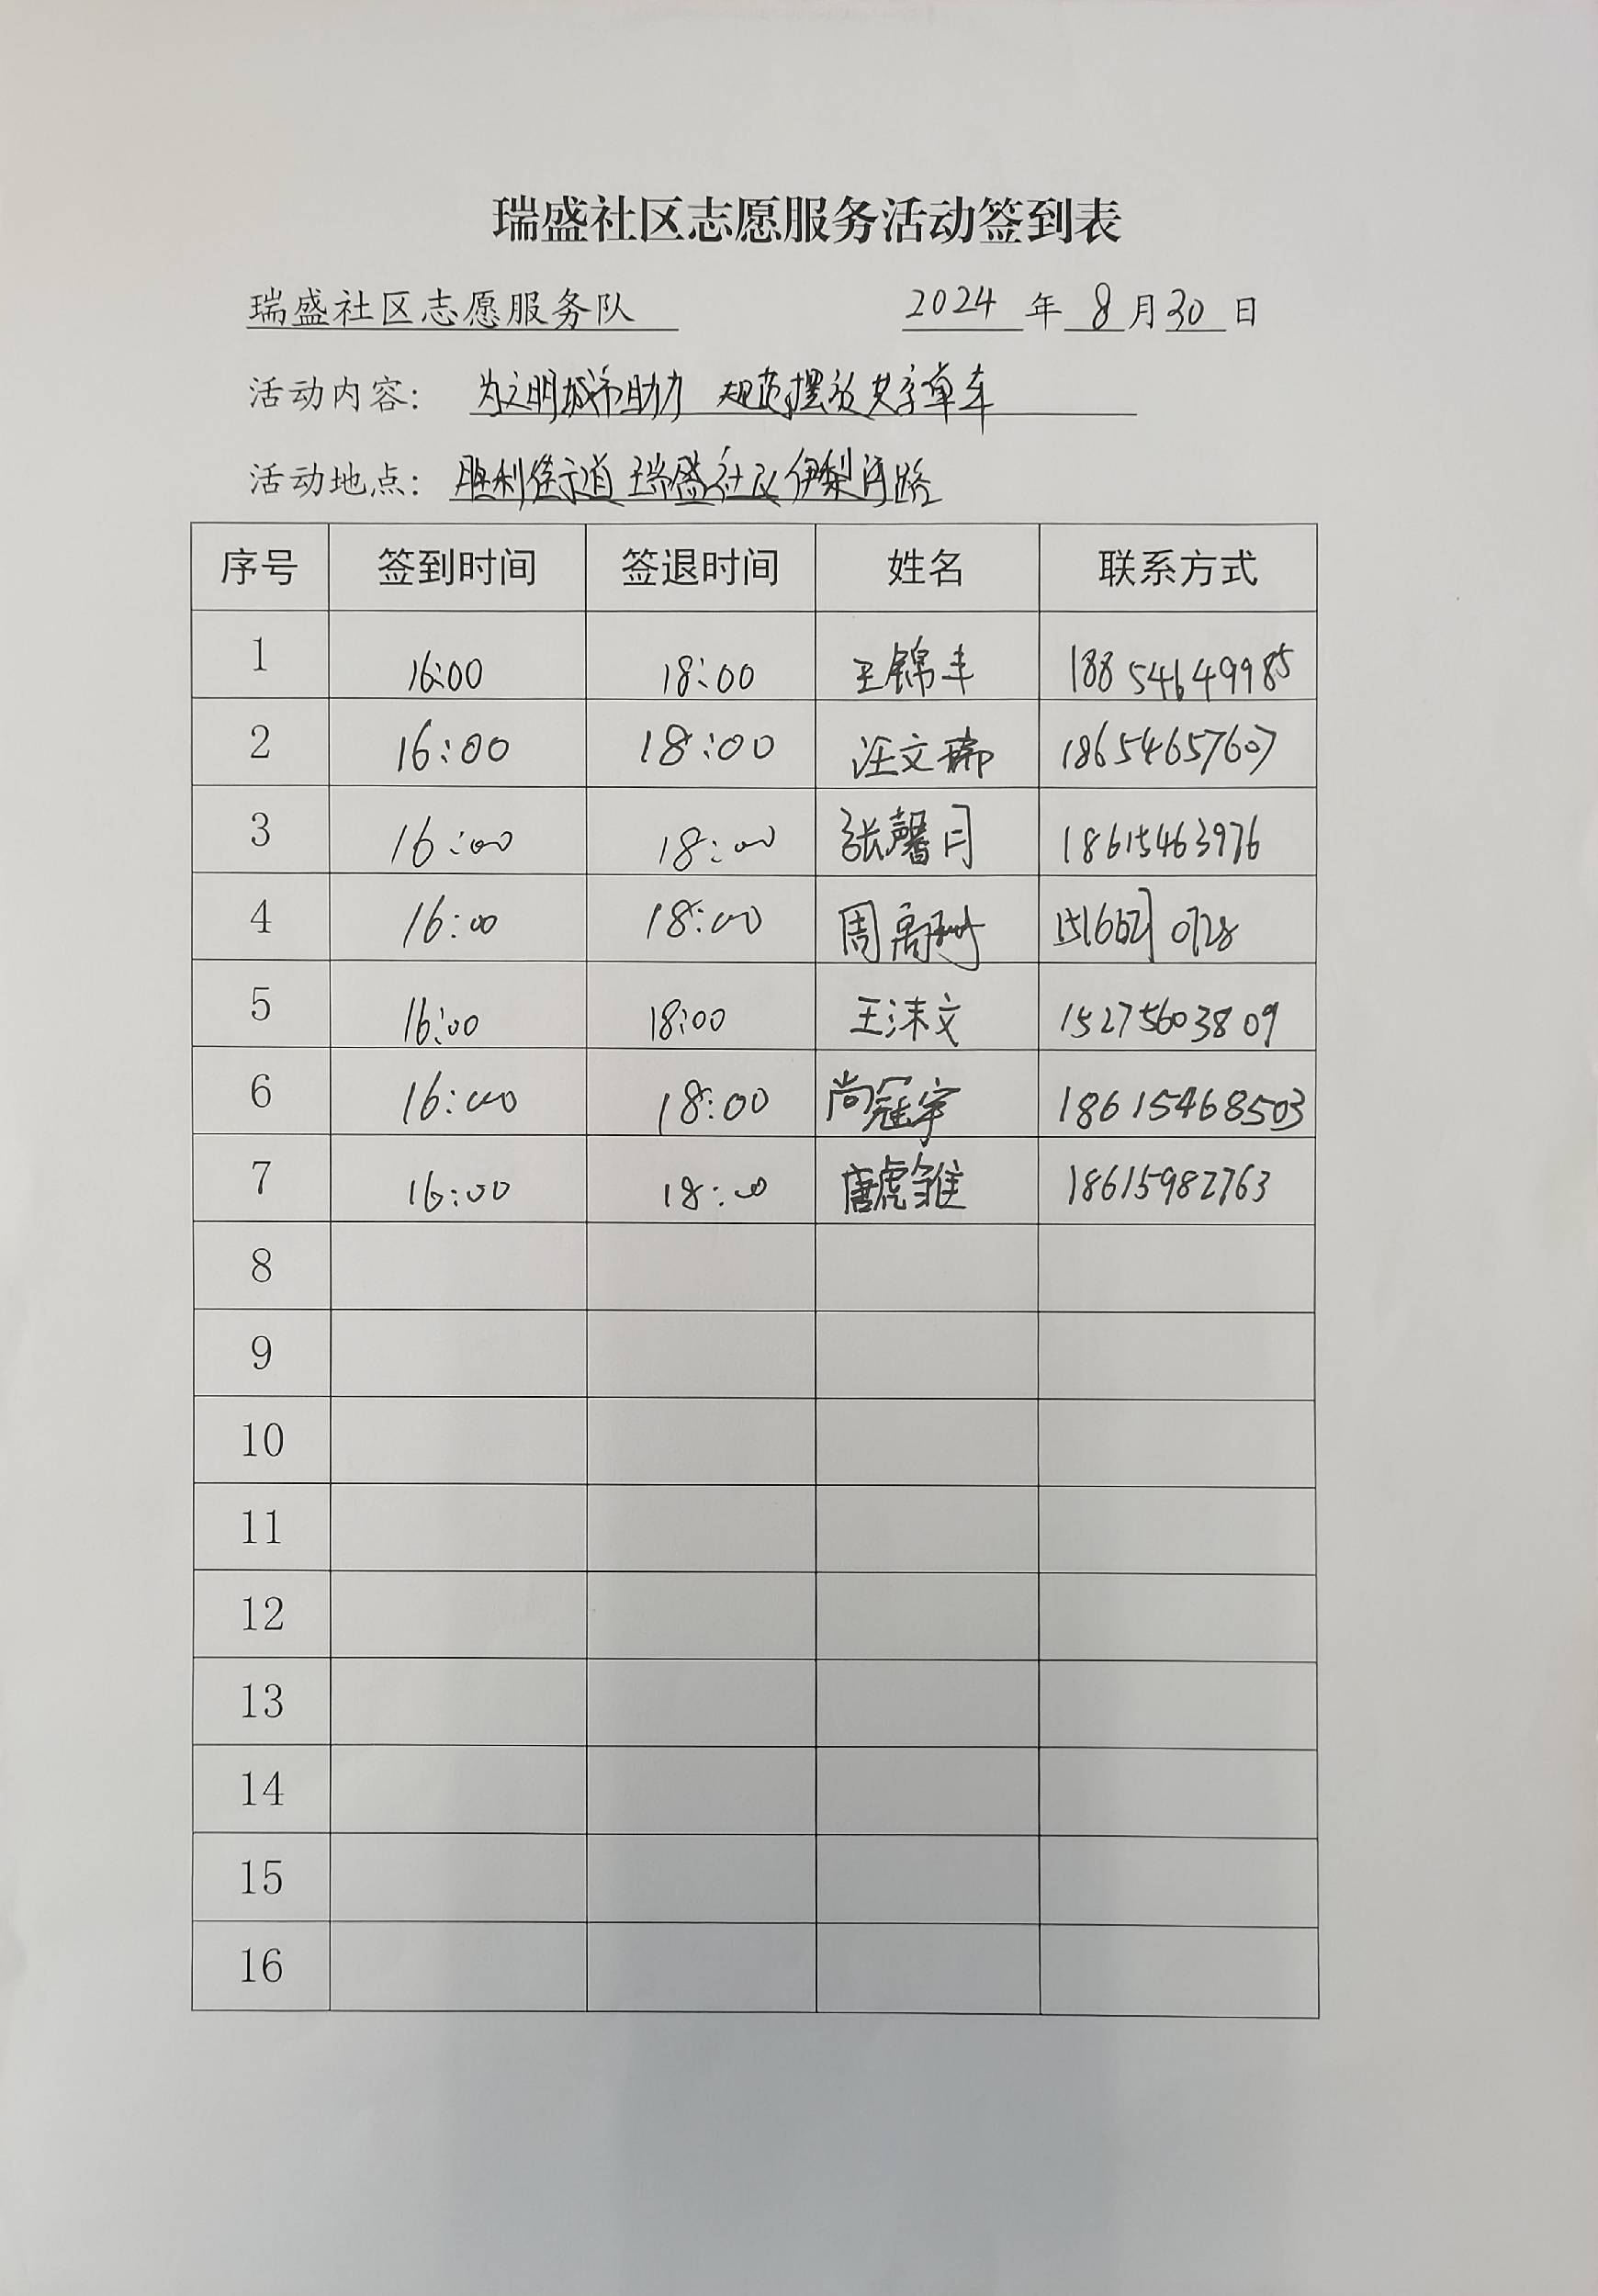 瑞盛社区志愿服务活动签到表
瑞盛社区志愿服务队 2024 年 8 月 30 日
活动内容: 为文明城市助力 规范摆放共享单车
活动地点: 胜利街道瑞盛社区伊犁河路
序号 签到时间 签退时间 姓名 联系方式
1 16:00 18:00 王锦丰 18854649985
2 16:00 18:00 汪文瑞 18654657607
3 16:00 18:00 张馨月 18615463976
4 16:00 18:00 周
5 16:00 18:00 王沫文 15275603809
6 16:00 18:00 尚冠宇 18615468503
7 16:00 18:00 唐虎雏 18615982763
8
9
10
11
12
13
14
15
16